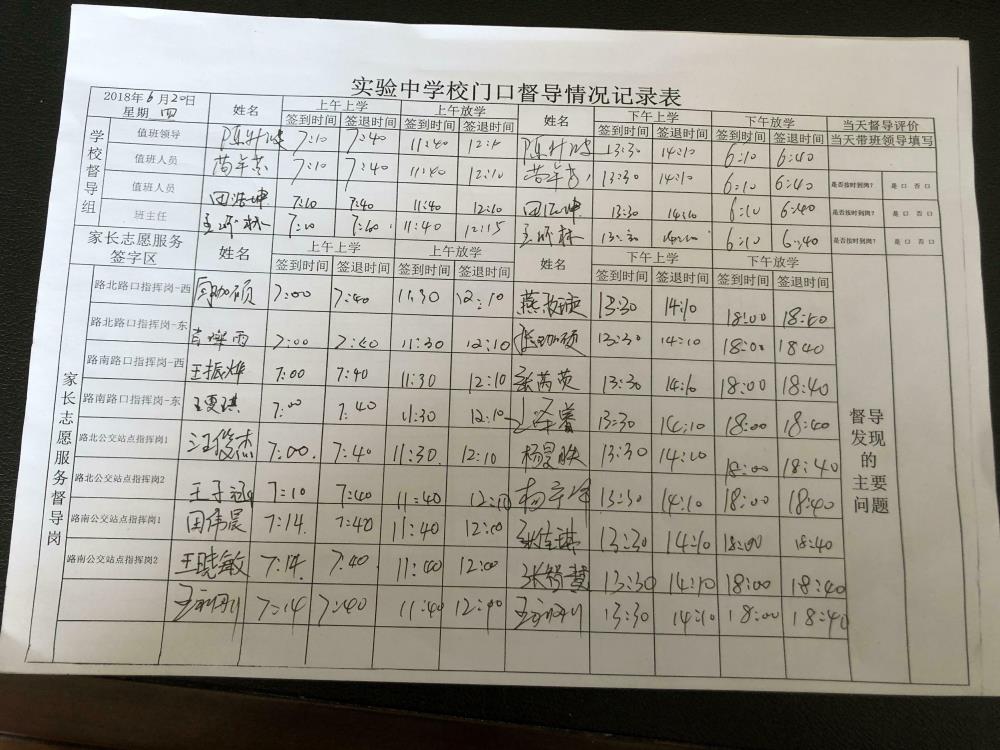 实验中学校门口督导情况记录表
2018年6月20日
星期 四
姓名 上午上学 上午放学 姓名 下午上学 下午放学 当天督导评价
签到时间 签退时间 签到时间 签退时间 签到时间 签退时间 签到时间 签退时间 当天带班领导填写
学校督导组
值班领导 7:10 7:40 11:40 13:30 14:10 6:10 6:40
值班人员 7:10 7:40 11:40 12:10 13:30 14:10 6:10 6:40 是否按时到岗? 是 口 否 口
值班人员 7:10 7:40 11:40 12:10 13:30 14:10 6:10 6:40 是否按时到岗? 是 口 否 口
班主任 11:40 12:15 6:10 6:40 是否按时到岗? 是 口 否 口
家长志愿服务
签字区
姓名 上午上学 上午放学 姓名 下午上学 下午放学
签到时间 签退时间 签到时间 签退时间 签到时间 签退时间 签到时间 签退时间
家长志愿服务督导岗
路北路口指挥岗-西 7:00 7:40 11:30 12:10 13:30 14:10 18:00 18:40
路北路口指挥岗-东 7:00 7:40 11:30 12:10 13:30 14:10 18:00 1840
路南路口指挥岗-西 王振烨 7:00 7:40 11:30 12:10 张芮英 13:30 14:10 18:00 18:40
路南路口指挥岗-东 7:00 7:40 11:30 12:10 13:30 14:10 18:00 18:40
路北公交站点指挥岗1 汪俊杰 7:00. 7:40 11:30. 12:10 13:30 14:10 18:00 18:40
路北公交站点指挥岗2 王子涵 7:10 7:40 11:40 13:30 14:10 18:00 18:40
路南公交站点指挥岗1 田伟晨 7:14. 7:40 11:40 12:00 张佳琪 13:30 14:10 18:00 18:40
路南公交站点指挥岗2 王晓敏 7:14. 7:40. 11:40 12:00 张智慧 13:30 14:10 18:00 18:40
7:14 7:40 11:40 13:30 14:10 18:00 18:40
督导
发现
的
主要
问题